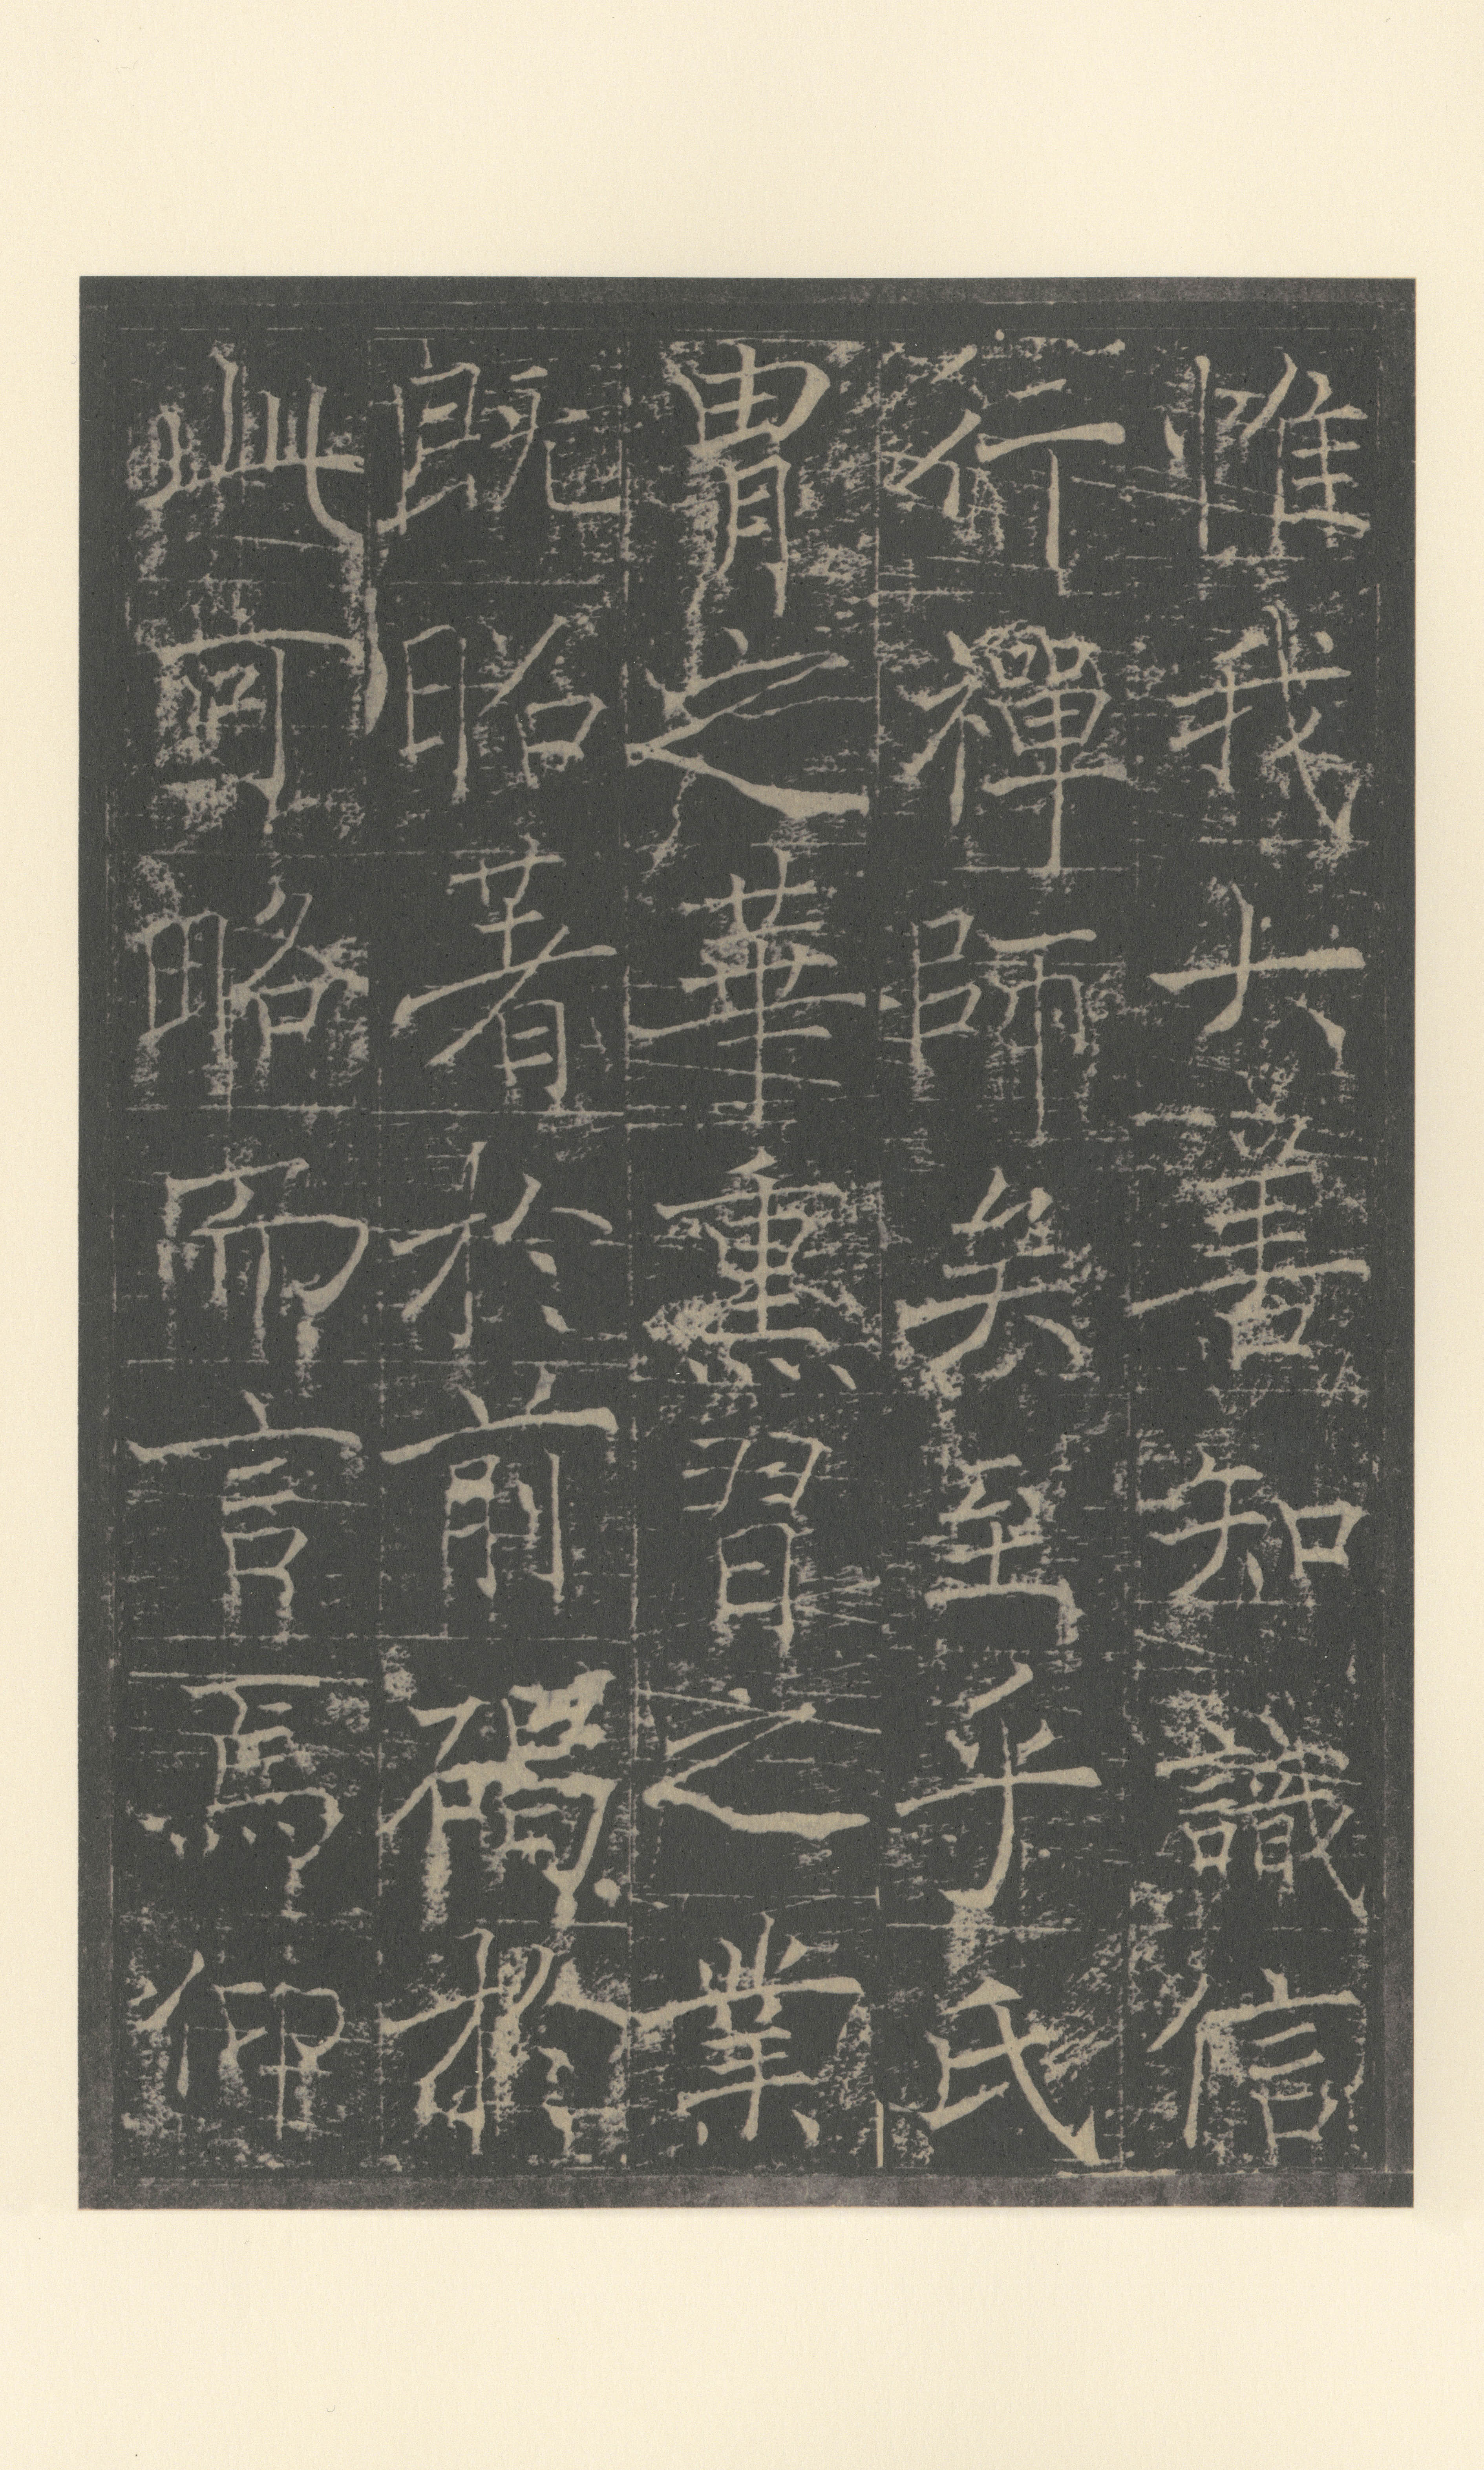 惟我大善知識信
行禪師矣至乎氏
冑之華熏習之業
既昭著於前碣
此可略而言焉仰